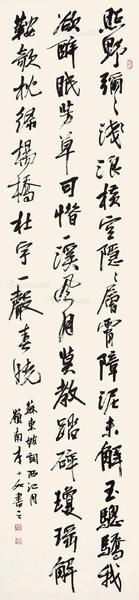 照野彌〻淺浪橫空隱〻層霄障泥未解玉驄驕我
欲醉眠芳草可惜一溪風月莫教踏碎瓊瑤解
鞍欹枕綠楊橋杜宇一聲春曉
蘇東坡詞西江月
嶺南李小如書